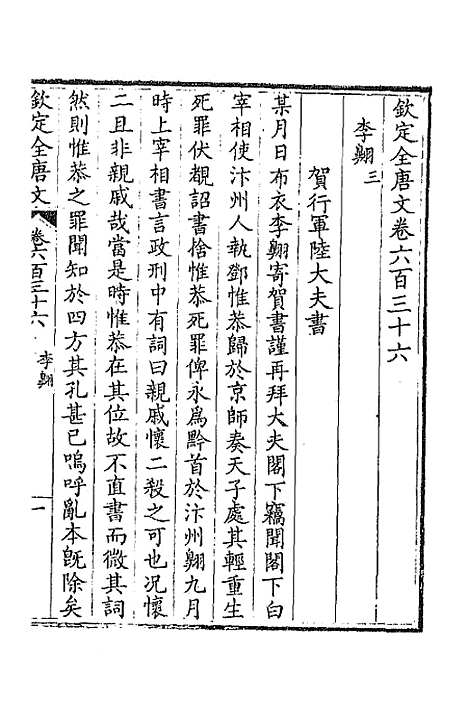 欽定全唐文卷六百三十六
李翺三
賀行軍陸大夫書
某月日布衣李翺寄賀書謹再拜大夫閣下竊聞閣下白
宰相使汴州人執鄧惟恭歸於京師奏天子處其輕重生
死罪伏覩詔書捨惟恭死罪俾永爲黔首於汴州翺九月
時上宰相書言政刑中有詞曰親戚懷二殺之可也況懷
二且非親戚哉當是時惟恭在其位故不直書而微其詞
然則惟恭之罪聞知於四方其孔甚已嗚呼亂本旣除矣
欽定全唐文
卷六百三十六
李翺
一